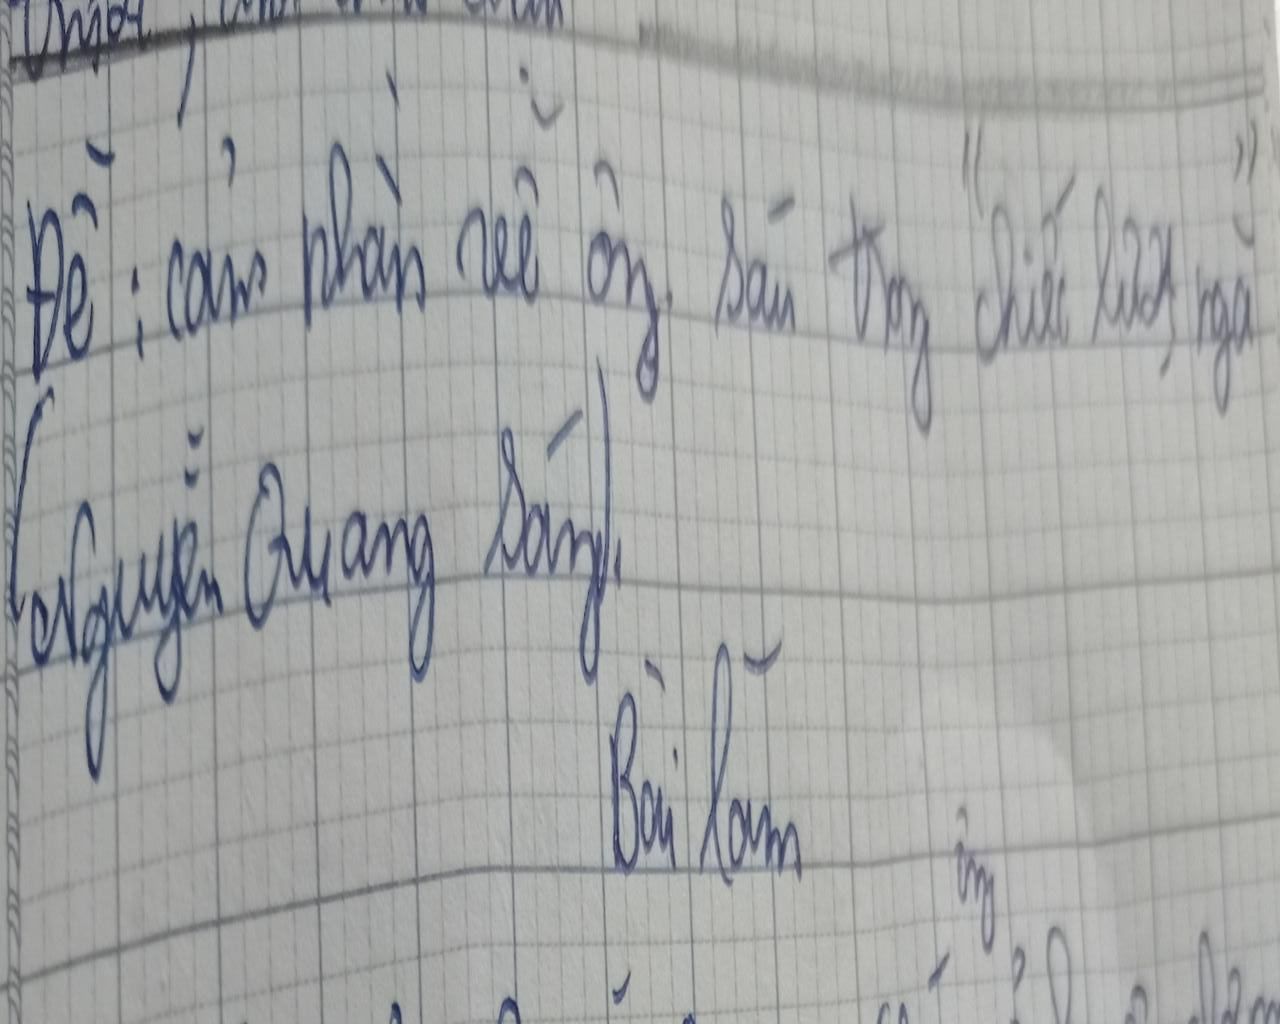 Đề: cảm nhận về ông Sáu trong "chiếc lược ngà"
(Nguyễn Quang Sáng).
Bài làm